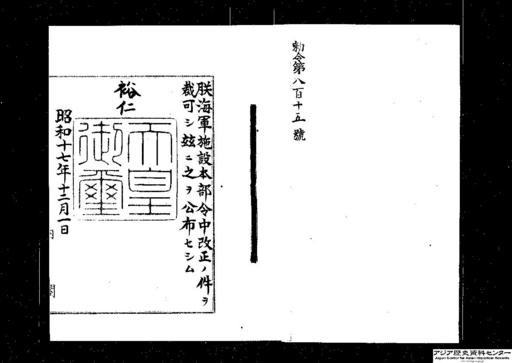 勅令第八百十五號
朕海軍施設本部令中改正ノ件ヲ
裁可シ玆ニ之ヲ公布セシム
裕仁
天皇
御璽
昭和十七年十二月一日
内閣
アジア歴史資料センター
Japan Center for Asian Historical Records